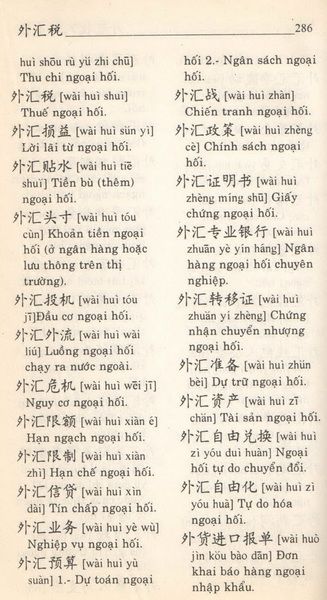 外汇税 286
huì shōu rù yǔ zhi chū]
Thu chi ngoại hối.
外汇税 [wài huì shuì]
Thuế ngoại hối.
外汇损益 [wài huì sǔn yì]
Lời lãi từ ngoại hối.
外汇贴水 [wài huì tiē
shuǐ] Tiền bù (thêm)
ngoại hối.
外汇头寸 [wài huì tóu
cùn] Khoản tiền ngoại
hối (ở ngân hàng hoặc
lưu thông trên thị
trường).
外汇投机 [wài huì tóu
jī]Đầu cơ ngoại hối.
外汇外流 [wài huì wài
liú] Luồng ngoại hối
chạy ra nước ngoài.
外汇危机 [wài huì wēi jī]
Nguy cơ ngoại hối.
外汇限额 [wài huì xiàn é]
Hạn ngạch ngoại hối.
外汇限制 [wài huì xiàn
zhì] Hạn chế ngoại hối.
外汇信贷 [wài huì xìn
dài] Tín chấp ngoại hối.
外汇业务 [wài huì yè wù]
Nghiệp vụ ngoại hối.
外汇预算 [wài huì yù
suàn] 1.- Dự toán ngoại
hối 2.- Ngân sách ngoại
hối.
外汇战 [wài huì zhàn]
Chiến tranh ngoại hối.
外汇政策 [wài huì zhèng
cè] Chính sách ngoại
hối.
外汇证明书 [wài huì
zhèng míng shū] Giấy
chứng ngoại hối.
外汇专业银行 [wài huì
zhuān yè yín háng] Ngân
hàng ngoại hối chuyên
nghiệp.
外汇转移证 [wài huì
zhuǎn yí zhèng] Chứng
nhận chuyển nhượng
ngoại hối.
外汇准备 [wài huì zhǔn
bèi] Dự trữ ngoại hối.
外汇资产 [wài huì zī
chǎn] Tài sản ngoại hối.
外汇自由兑换 [wài huì
zì yóu duì huàn] Ngoại
hối tự do chuyển đổi.
外汇自由化 [wài huì zì
yóu huà] Tự do hóa
ngoại hối.
外货进口报单 [wài huò
jìn kǒu bào dān] Đơn
khai báo hàng ngoại
nhập khẩu.